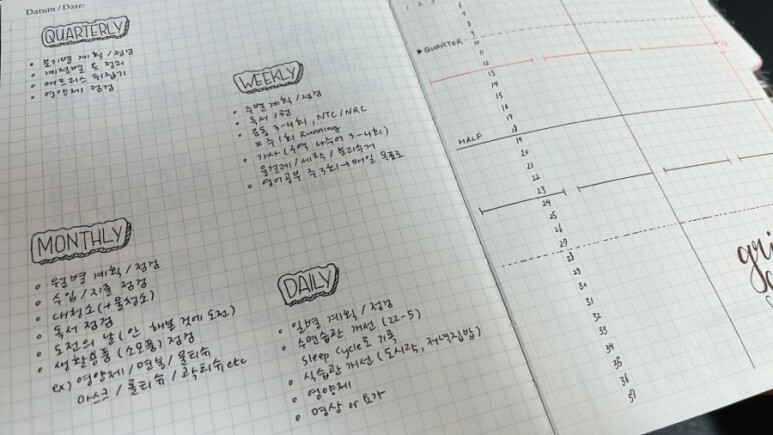 Datum / Date:
QUARTERLY
• 분기별 계획 / 점검
• 계절별 옷 정리
• 매트리스 뒤집기
• 영양제 점검
WEEKLY
• 주별 계획 / 점검
• 독서 1권
• 운동 3-4회, NTC/NRC
* 주 1회 Running
• 가사 (구역 나누어 3-4회)
물걸레 / 세탁 / 분리수거
• 영어공부 주3회 → 매일 목표로
MONTHLY
• 월별 계획 / 점검
• 수입 / 지출 점검
• 대청소 (+ 물청소)
• 독서 점검
• 도전의 날 (안 해본 것에 도전)
• 생활용품 (소모품) 점검
ex) 영양제 / 면봉 / 물티슈
마스크 / 롤티슈 / 곽티슈 etc
DAILY
• 일별 계획 / 점검
• 수면습관 개선 (22-5)
Sleep Cycle로 기록
• 식습관 개선 (도시락, 저녁집밥)
• 영양제
• 명상 or 요가
1 2 3
8
9
▶QUARTER 10
11
12
13
14
15
16
17
18
HALF 19
20
21
22
23
24
25
26
27
28
29
30
31
32
33
34
35
36
37